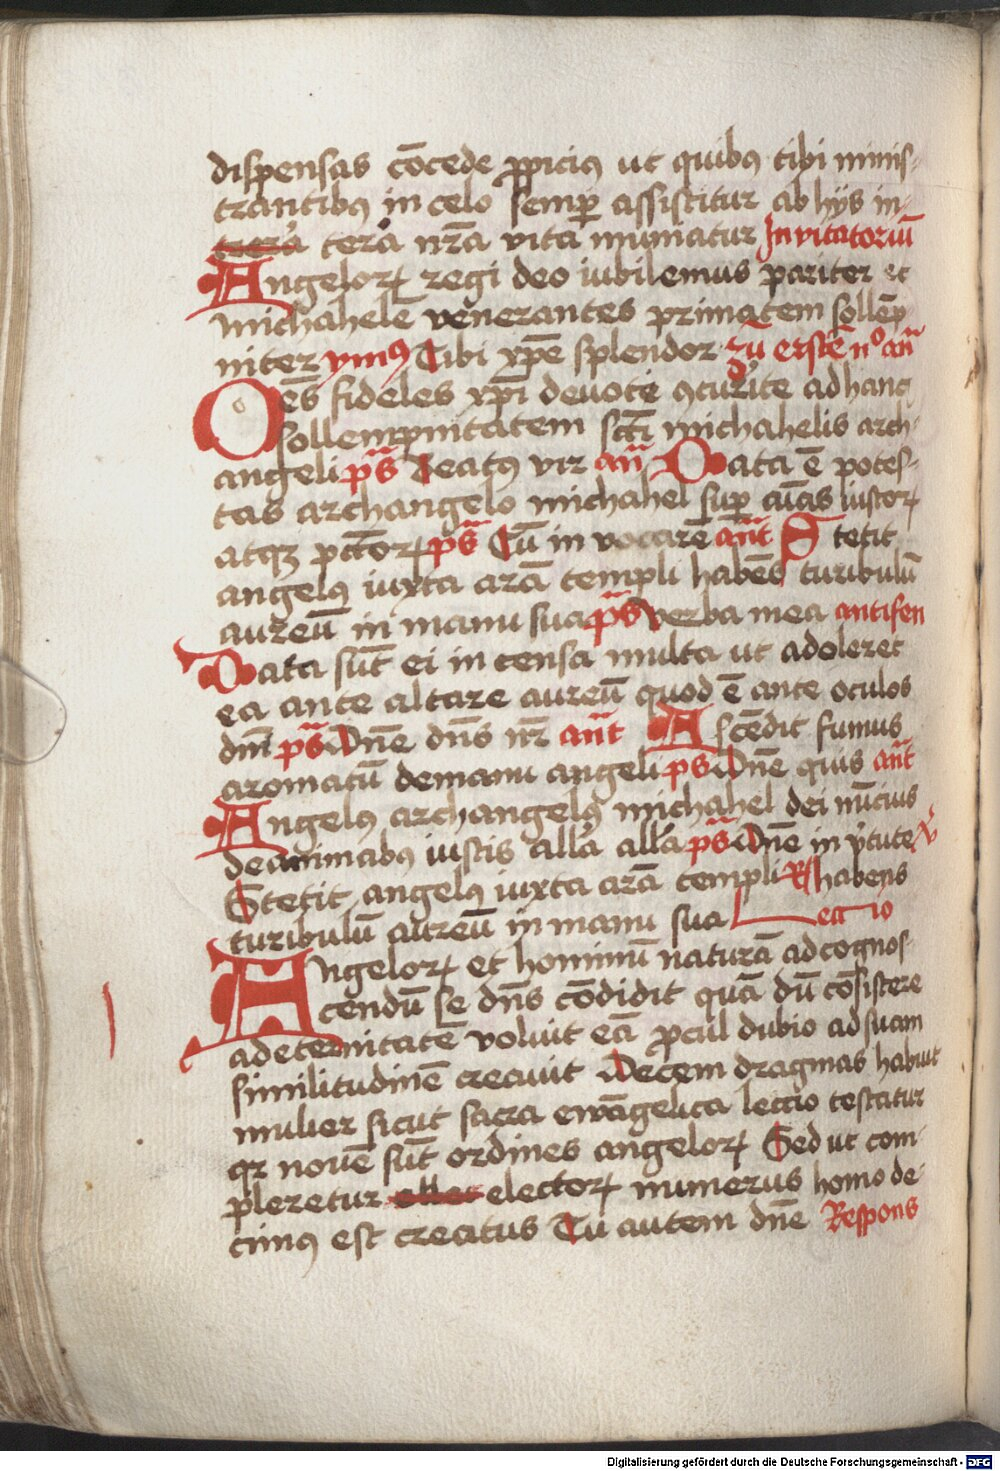 dispensas cōcede ꝓpiciꝰ ut quibꝰ tibi minis-
trantibꝰ in celo semꝑ assistitur ab hijs in
terra tera nr̄a vita muniatur Invitatoriū
Angeloꝝ regi deo iubilemus pariter et
michahelē venerantes primatem sollēp
niter ymnꝰ Tibi xp̄e splendor zū erstē n° an̄
Oēs fideles xp̄i devote ꝯcurite ad hanc
sollempnitatem scti michahelis arch-
angeli ps̄ Beatꝰ vir an̄ Data ē potes-
tas archangelo michahel suꝑ aīas iustoꝝ
atqꝫ pctōꝝ ps̄ Cū in vocarē an̄t Stetit
angelꝰ iuxta arā templi habēs turibulū
aureū in manu sua ps̄ verba mea antifen
Data sūt ei in censa multa ut adoleret
ea ante altare aureū quod ē ante oculos
dn̄i ps̄ Dn̄e dn̄s nr̄ an̄t Ascēdit fumus
aromatū de manu angeli ps Dn̄e quis an̄t
Angelꝰ archangelꝰ michahel dei nūcius
de animabꝰ iustis all'a all'a ps̄ Dn̄e in v̓tute v̓
Stetit angelꝰ iuxta arā templi R̸ habens
turibulū aureū in manu sua Leccio
Angeloꝝ et hominū naturā ad cognos-
cendū se dn̄s cōdidit quā dū cōsistere
ad eternitatē voluit eā procul dubio ad suam
similitudinē creavit Decem dragmas habuit
mulier sicut sacra ewāgelica leccio testatur
qꝛ novē sūt ordines angeloꝝ Sed ut com-
pleretur electoꝝ numerus homo de-
cimꝰ est creatus Tu autem dn̄e Respons
Digitalisierung gefördert durch die Deutsche Forschungsgemeinschaft - DFG